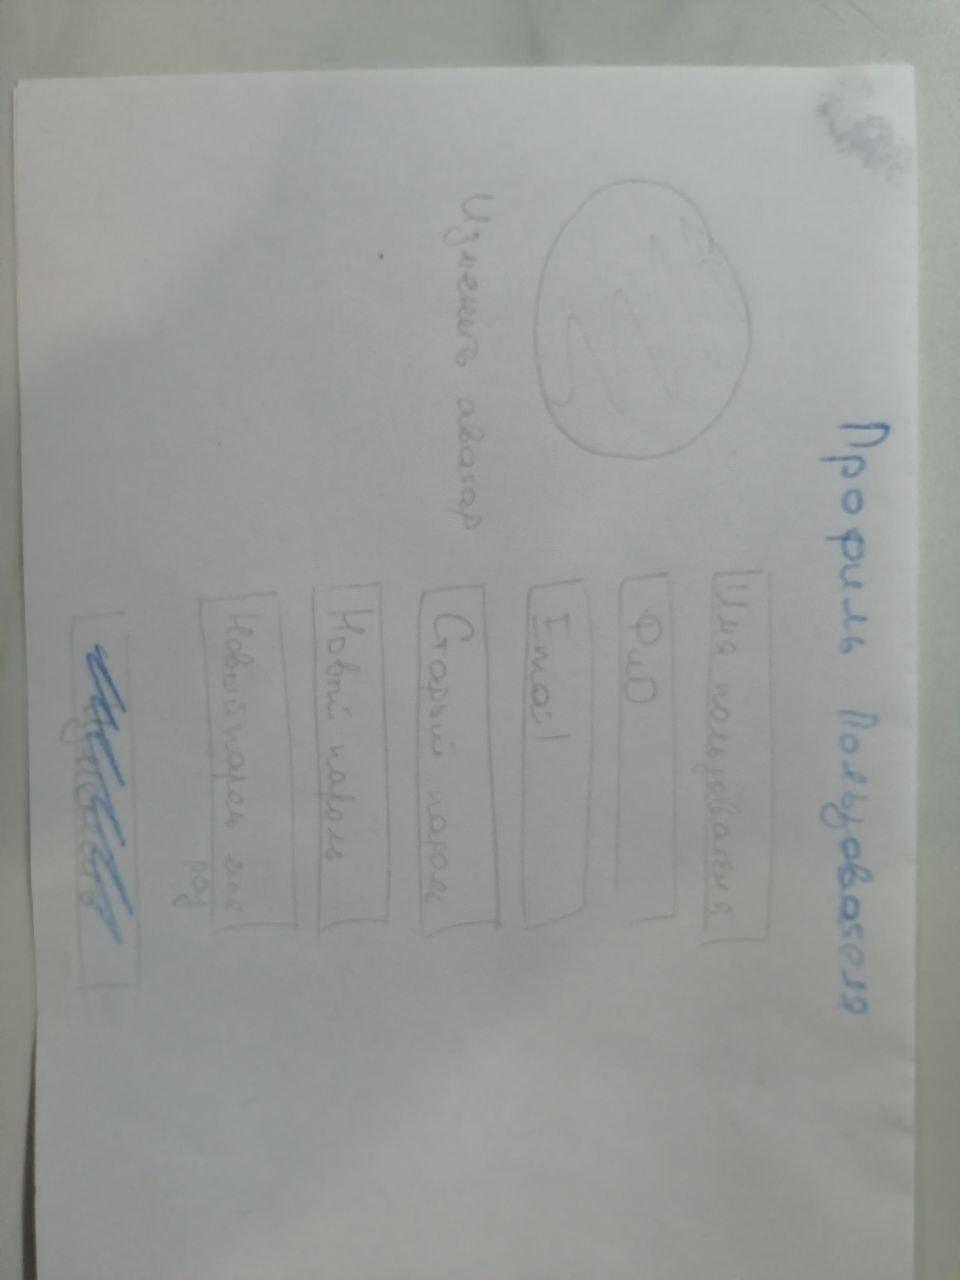 Профиль Пользователя
Изменить аватар
Имя пользователя
ФИО
Email
Старый пароль
Новый пароль
Новый пароль ещё
раз